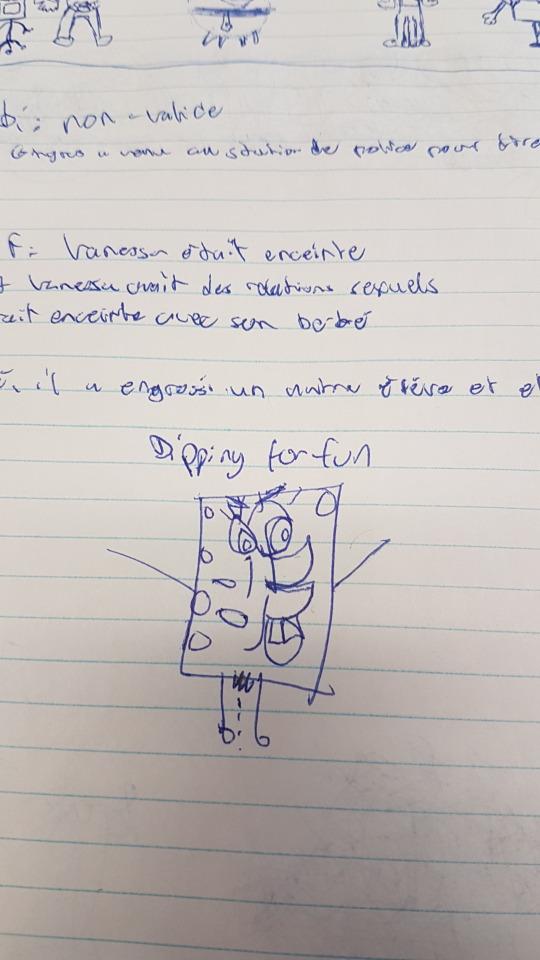 non-valide
station de police pour
F: Vanessa était enceinte
Vanessa avait des relations sexuels
enceinte avec son bébé
il a engrossi un autre élève et
Dipping for fun